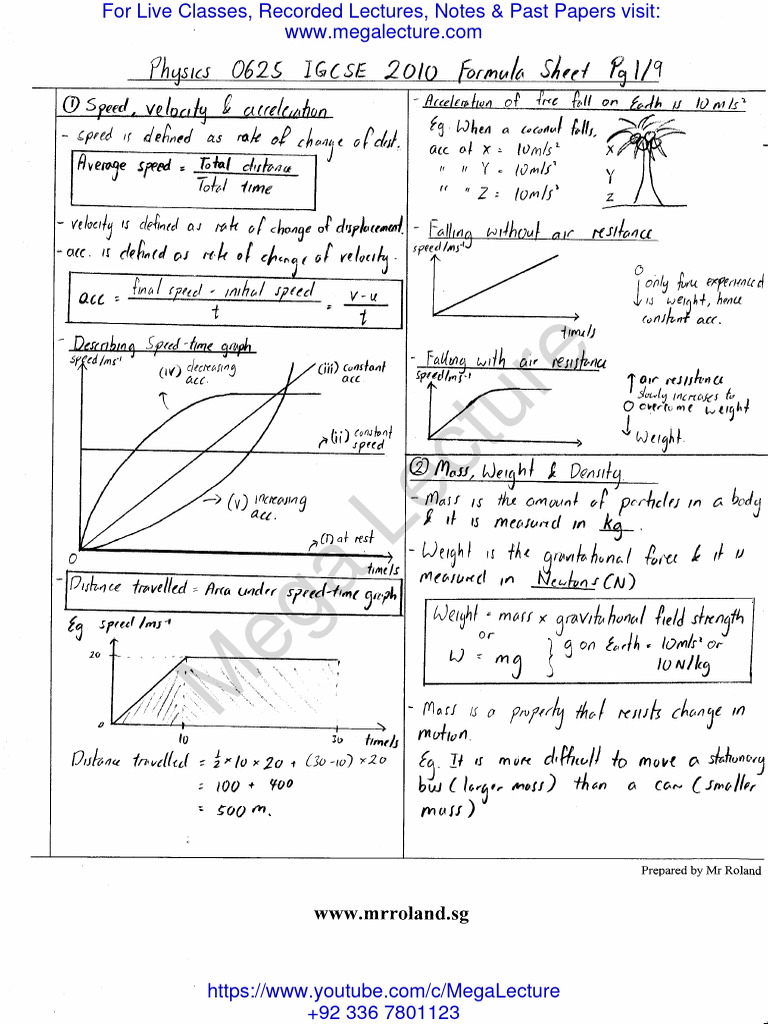 For Live Classes, Recorded Lectures, Notes & Past Papers visit:
www.megalecture.com
Physics 0625 IGCSE 2010 Formula Sheet Pg 1/9
① Speed, velocity & acceleration
- speed is defined as rate of change of dist.
Average speed = Total distance
Total time
- velocity is defined as rate of change of displacement.
- acc. is defined as rate of change of velocity.
acc = final speed - initial speed = v-u
t t
- Describing Speed-time graph
speed/ms⁻¹
(iv) decreasing
acc.
(iii) constant
acc
(ii) constant
speed
(v) increasing
acc.
(i) at rest
0
time/s
- Distance travelled = Area under speed-time graph
Eg speed/ms⁻¹
20
0
10 30 time/s
Distance travelled = ½ × 10 × 20 + (30-10) × 20
= 100 + 400
= 500 m.
- Acceleration of free fall on Earth is 10 m/s²
Eg. When a coconut falls,
acc at X = 10m/s²
" " Y = 10m/s²
" " Z = 10m/s²
X
Y
Z
- Falling without air resistance
speed/ms⁻¹
time/s
only force experienced
is weight, hence
constant acc.
- Falling with air resistance
speed/ms⁻¹
air resistance
slowly increases to
overcome weight
Weight.
② Mass, Weight & Density
- Mass is the amount of particles in a body
& it is measured in kg.
- Weight is the gravitational force & it is
measured in Newtons (N)
Weight = mass × gravitational field strength
or
W = mg } g on Earth = 10m/s² or
10 N/kg
- Mass is a property that resists change in
motion.
Eg. It is more difficult to move a stationary
bus (larger mass) than a car (smaller
mass)
Mega Lecture
Prepared by Mr Roland
www.mrroland.sg
https://www.youtube.com/c/MegaLecture
+92 336 7801123